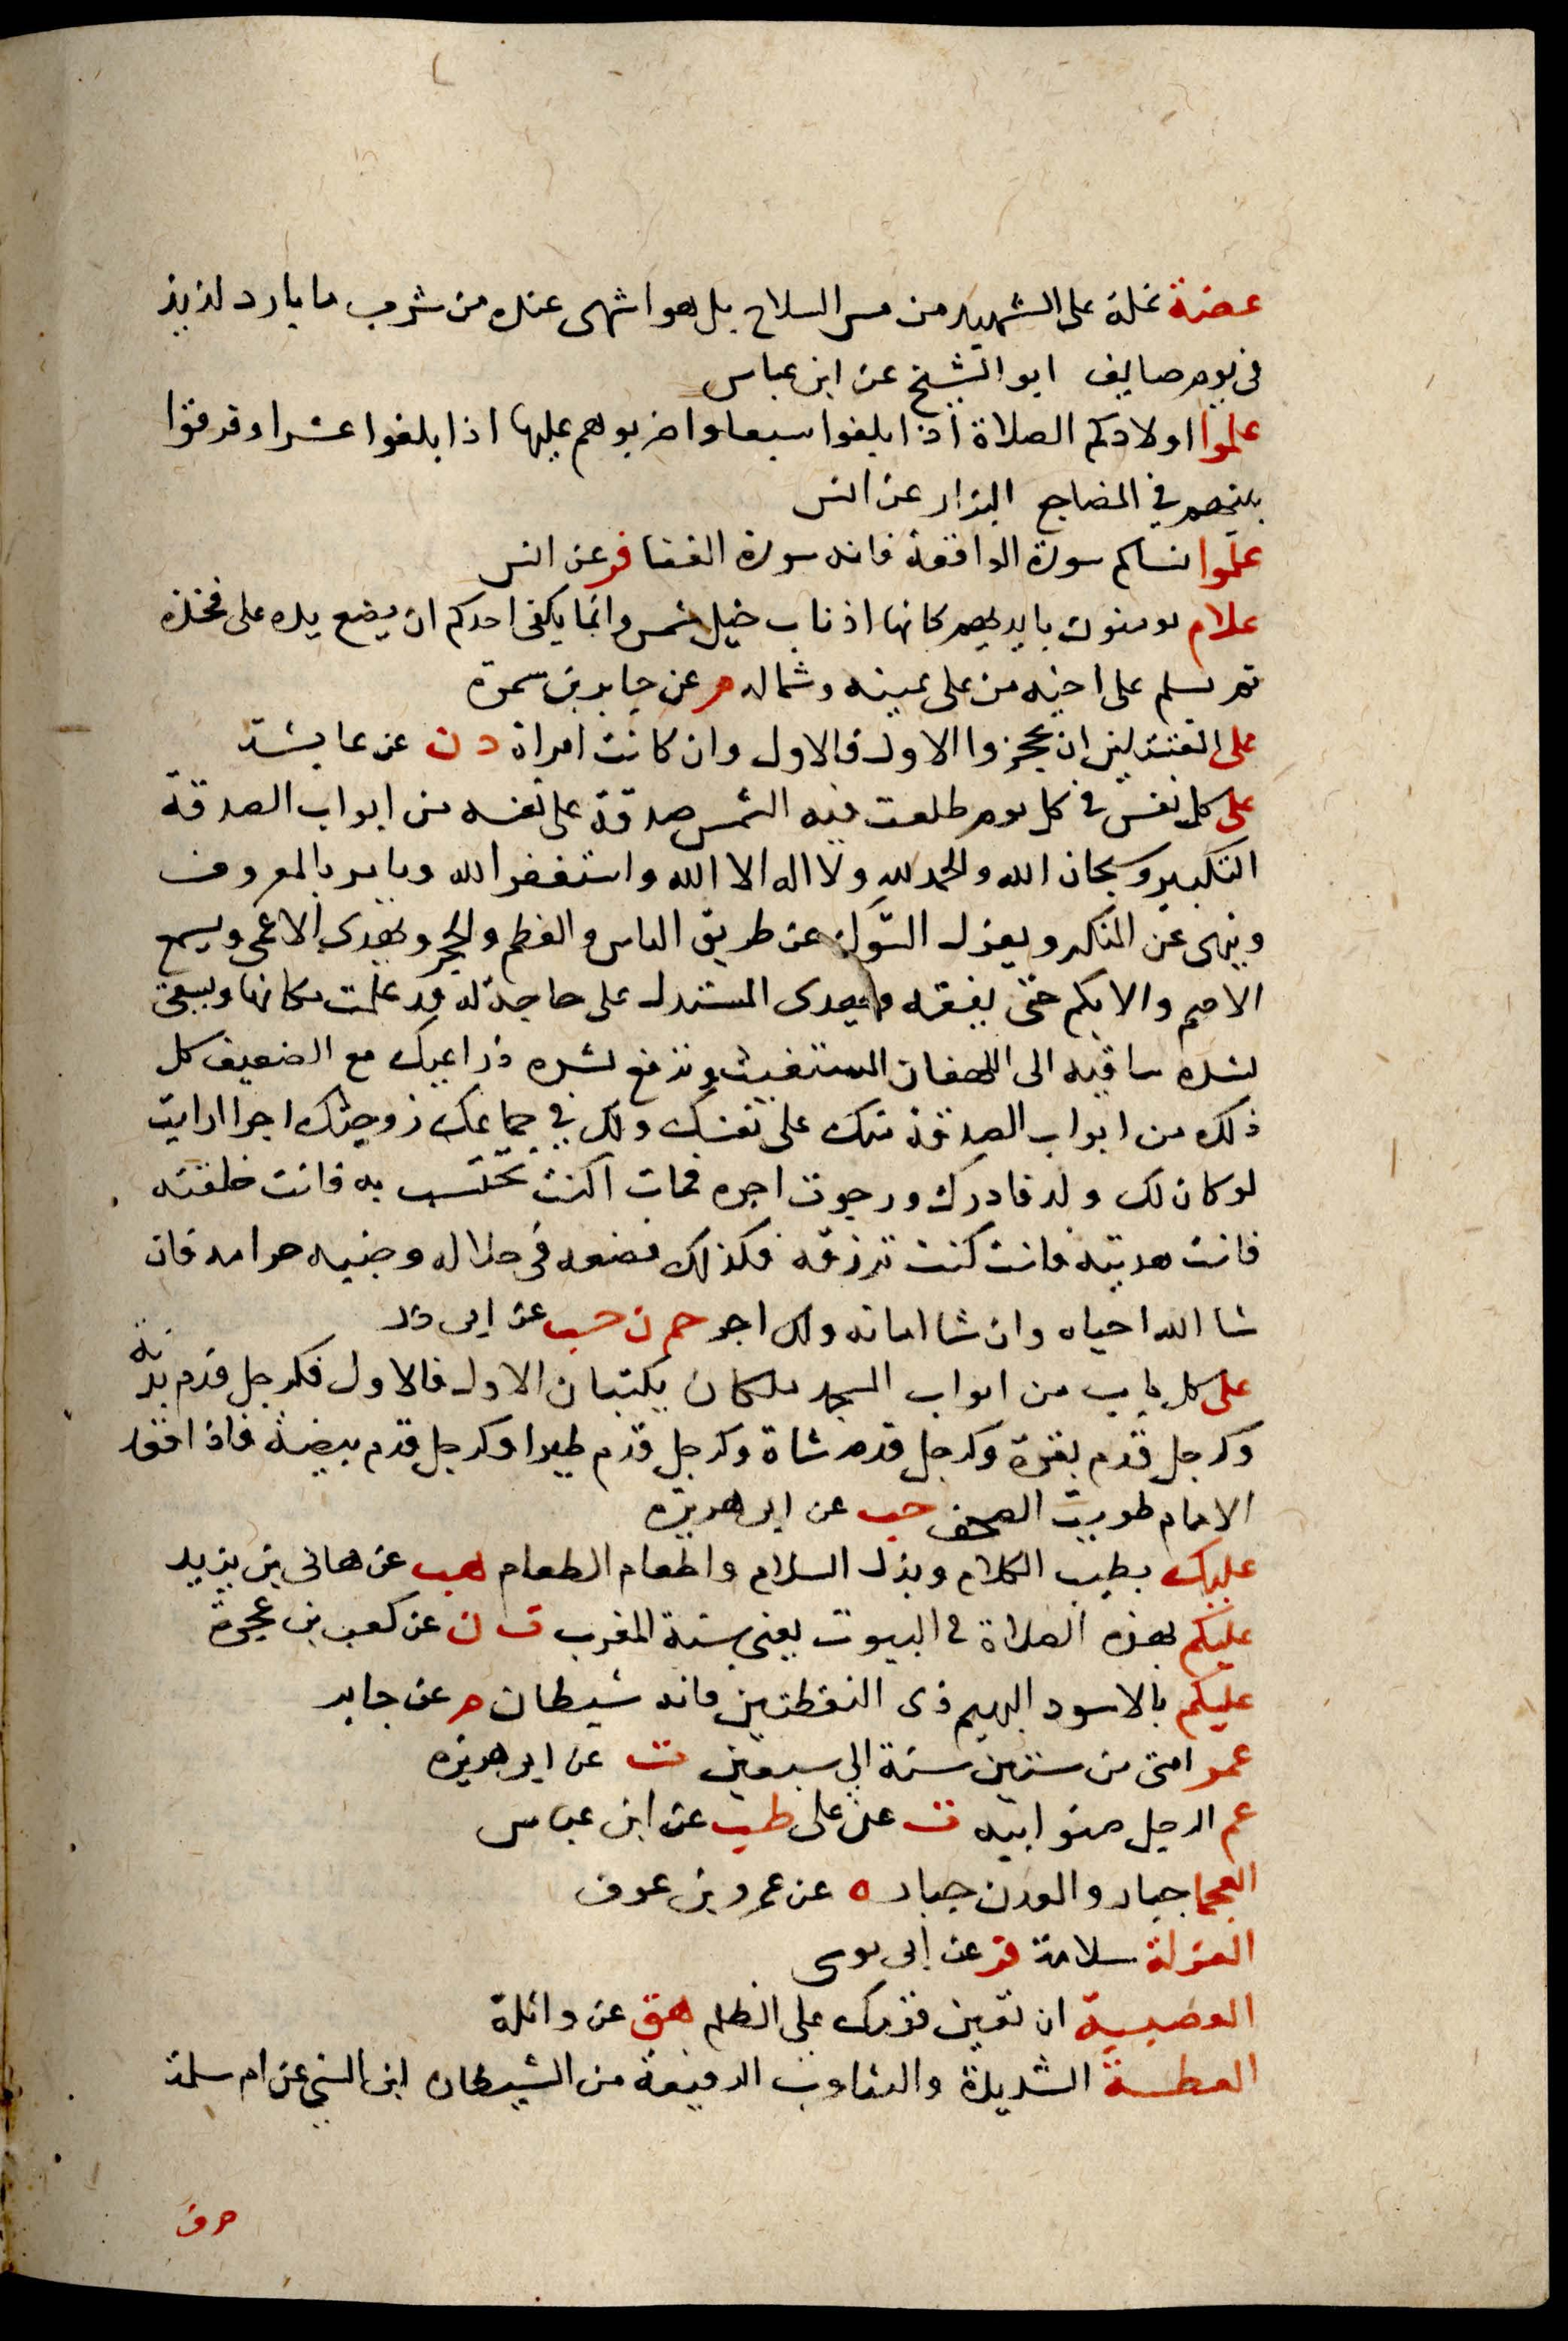 عضة نملة على الشهيد من مس السلاح بل هو اشهى عنده من شرب ما بارد لذيذ
في يوم صايف ابو الشيخ عن ابن عباس
علموا اولادكم الصلاة اذا بلغوا سبعا واضربوهم عليها اذا بلغوا عشرا وفرقوا
بينهم في المضاجع البزار عن انس
علموا نساكم سورة الواقعة فانه سورة الغنا فر عن انس
علام تومنون بايديهم كانها اذناب خيل شمس وانما يكفى احدكم ان يضع يده على فخذه
ثم يسلم على اخيه من على يمينه وشماله م عن جابر بن سمرة
على المقتتلين ان يحجزوا الاول فالاول وان كانت امراة د ن عن عايشة
على كل نفس في كل يوم طلعت فيه الشمس صدقة على نفسه من ابواب الصدقة
التكبير وسبحان الله والحمد لله ولا اله الا الله واستغفر الله ويامر بالمعروف
وينهى عن المنكر ويعزل الشوك عن طريق الناس والعظم والحجر ويهدى الاعمى ويسمع
الاصم والابكم حتى يفقه ويهدى المستدل على حاجة له قد علمت مكانها ويسعى
بشدة ساقيه الى اللهفان المستغيث وترفع بشدة ذراعيك مع الضعيف كل
ذلك من ابواب الصدقة منك على نفسك ولك في جماعك زوجتك اجر ارايت
لو كان لك ولد فادرك ورجوت اجره فمات اكنت تحتسب به فانت خلقته
فانت هديته فانت كنت ترزقه فكذلك فضعه في حلاله وجنبه حرامه فان
شا الله احياه وان شا اماته ولك اجر حم ن حب عن ابى ذر
على كل باب من ابواب المسجد ملكان يكتبان الاول فالاول فكرجل قدم بدنة
وكرجل قدم بقرة وكرجل قدم شاة وكرجل قدم طيرا وكرجل قدم بيضة فاذا قعد
الامام طويت الصحف حب عن ابى هريرة
عليك بطيب الكلام وبذل السلام واطعام الطعام هب عن هانى بن يزيد
عليكم بهذه الصلاة في البيوت يعنى سنة المغرب ت ن عن كعب بن عجرة
عليكم بالاسود البهيم ذى النقطتين فانه شيطان م عن جابر
عمر امتى من ستين سنة الى سبعين ت عن ابى هريرة
عم الرجل صنو ابيه ت عن على طب عن ابن عباس
العجما جبار والمعدن جبار ه عن عمرو بن عوف
العزلة سلامة فر عن ابى موسى
العصبية ان تعين قومك على الظلم هق عن واثلة
العطسة الشديدة والتثاوب الرفيعة من الشيطان ابن السني عن ام سلمة
حرف